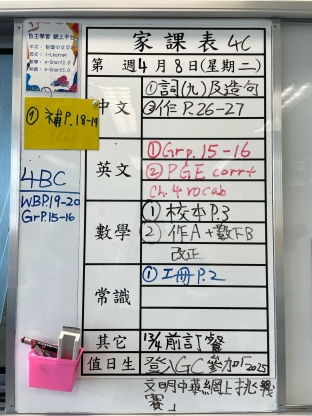 自主學習 網上平台
家課表 4C
第 週 4 月 8 日(星期二)
中文
①詞(九)及造句
③作 P.26-27
①補P.18-19
英文
①Grp.15-16
②PGE corrt
Ch.4 vocab
4BC
WBP.19-20
GrP.15-16
數學
① 校本P.3
② 作A+數下B
改正
常識
① 工冊P.2
其它
13/4前訂餐
值日生
登入GC參加「2025
文明中華網上挑戰
賽」